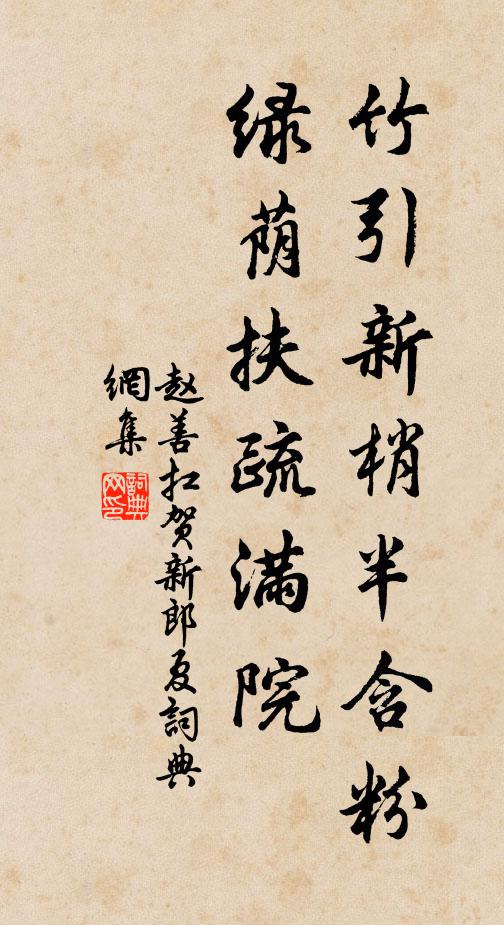 竹引新梢半含粉
绿荫扶疏满院
赵善扛贺新郎夏詞典
網集
詞典
网印